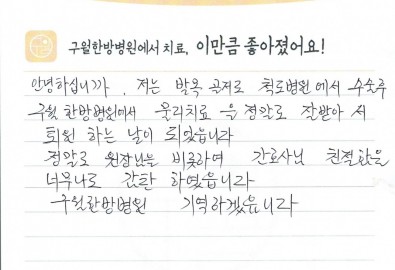 구월한방병원에서 치료, 이만큼 좋아졌어요!
안녕하십니까. 저는 박옥 공저로 척도병원에서 수숫후
구월한방병원에서 물리치료 을 정악로 잘받아 서
퇴원 하는 날이 되었읍니다
정악로 원장님을 비롯하여 간호사님 친절함을
너무나로 감탄 하였읍니다
구월한방병원 기억하겠읍니다